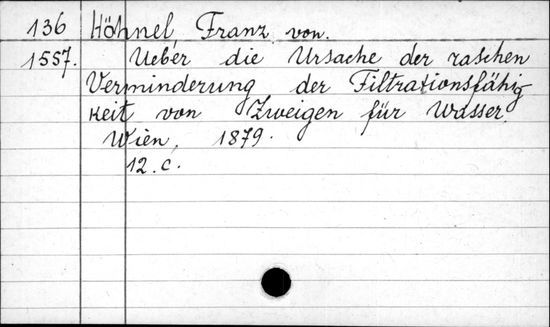 136 Höhnel, Franz von.
1557. Ueber die Ursache der raschen
Verminderung der Filtrationsfähig
keit von Zweigen für Wasser.
Wien, 1879.
12. c.